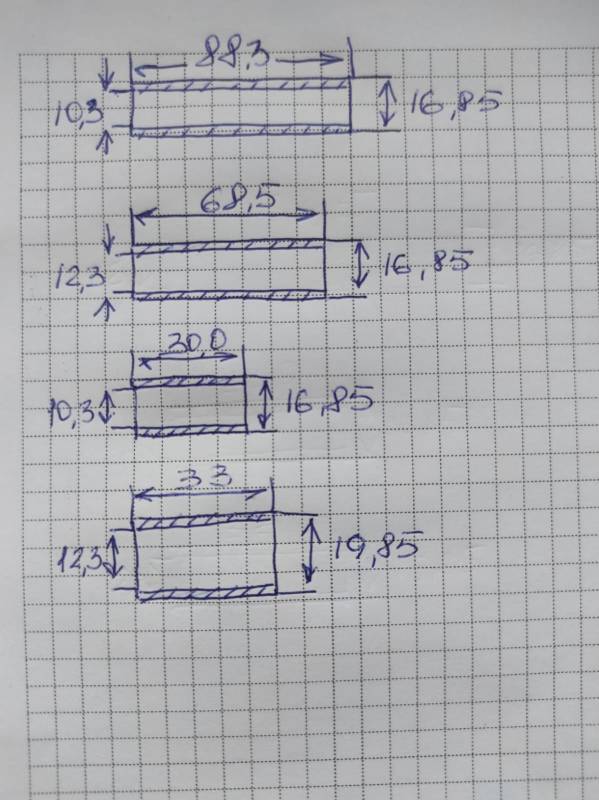 88,3
10,3 16,85
68,5
12,3 16,85
30,0
10,3 16,85
33
12,3 19,85